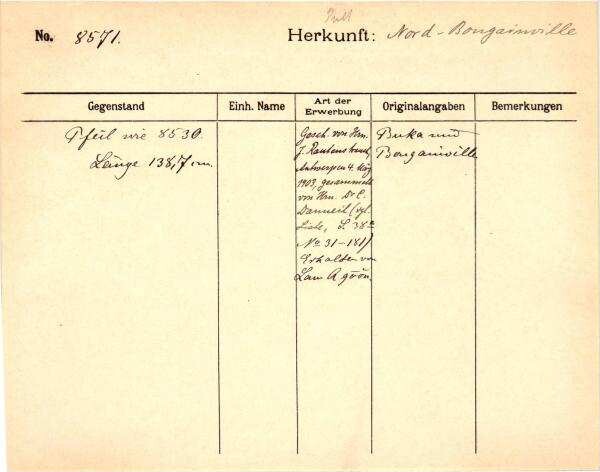 No. 8571.
Herkunft: Nord-Bougainville
Gegenstand
Einh. Name
Art der Erwerbung
Originalangaben
Bemerkungen
Pfeil wie 8530.
Länge 138,7 cm.
Gesch. von Hrn.
J. Rautenstrauch,
Antwerpen 4. März
1903, gesammelt
von Hrn. Dr. C.
Danneil (vgl.
Liste, S. 38a
No 31-181)
Erhalten von
Lam
Buka und
Bougainville